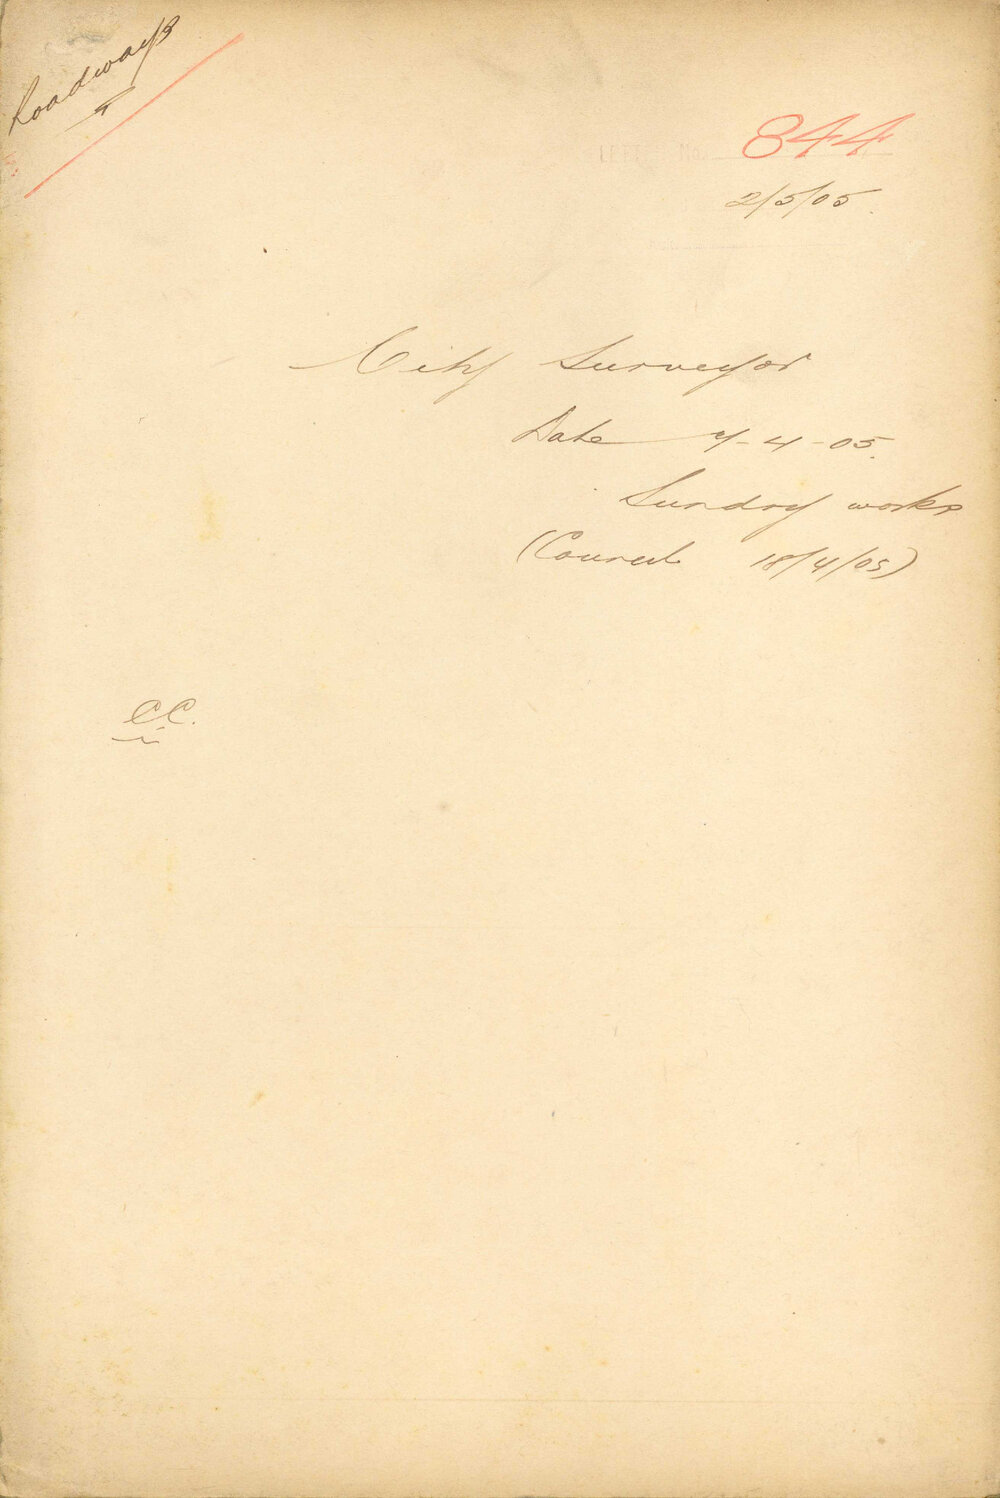 Roadways
844
2/5/05.
City Surveyor
Date 7-4-05.
Sundry works
(Council 18/4/05)
C.C.